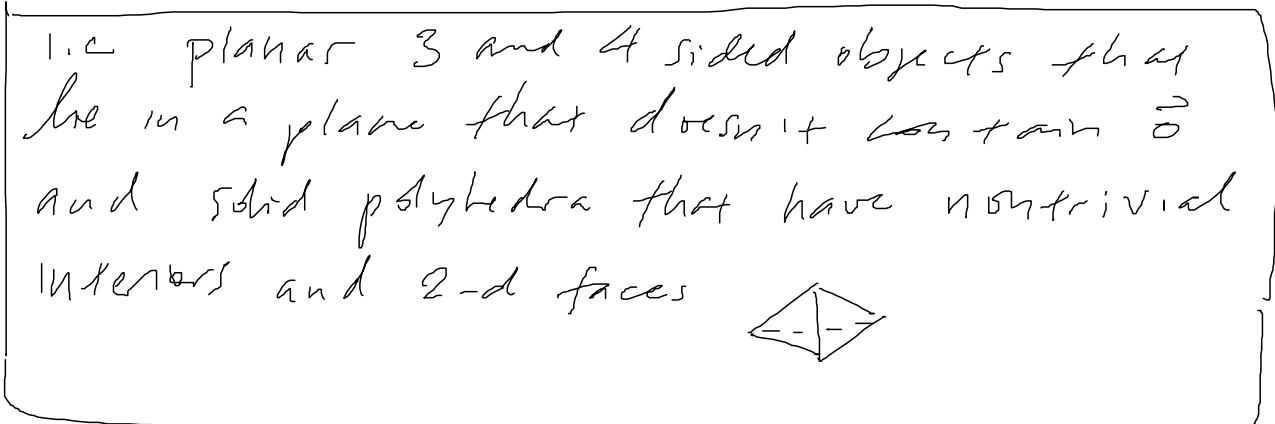 i.e planar 3 and 4 sided objects that
lie in a plane that doesn't contain 0⃗
and solid polyhedra that have nontrivial
interiors and 2-d faces